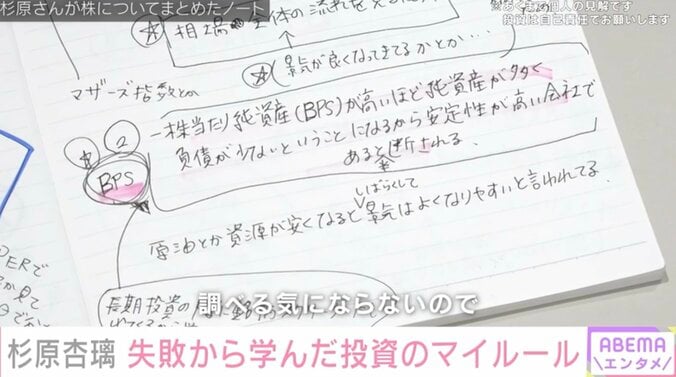 杉原さんが株についてまとめたノート
※あくまで個人の見解です
投資は自己責任でお願いします
相場全体の流れを
景気が良くなってきてるかとか…
マザーズ指数とか
② 
BPS
一株当たり純資産(BPS)が高いほど純資産が多く
負債が少ないということになるから安定性が高い会社で
あると断される
しばらくして
原油とか資源が安くなると景気はよくなりやすいと言われてる
PERで
長期投資の
調べる気にならないので
杉原杏璃 失敗から学んだ投資のマイルール
ABEMA
エンタメ